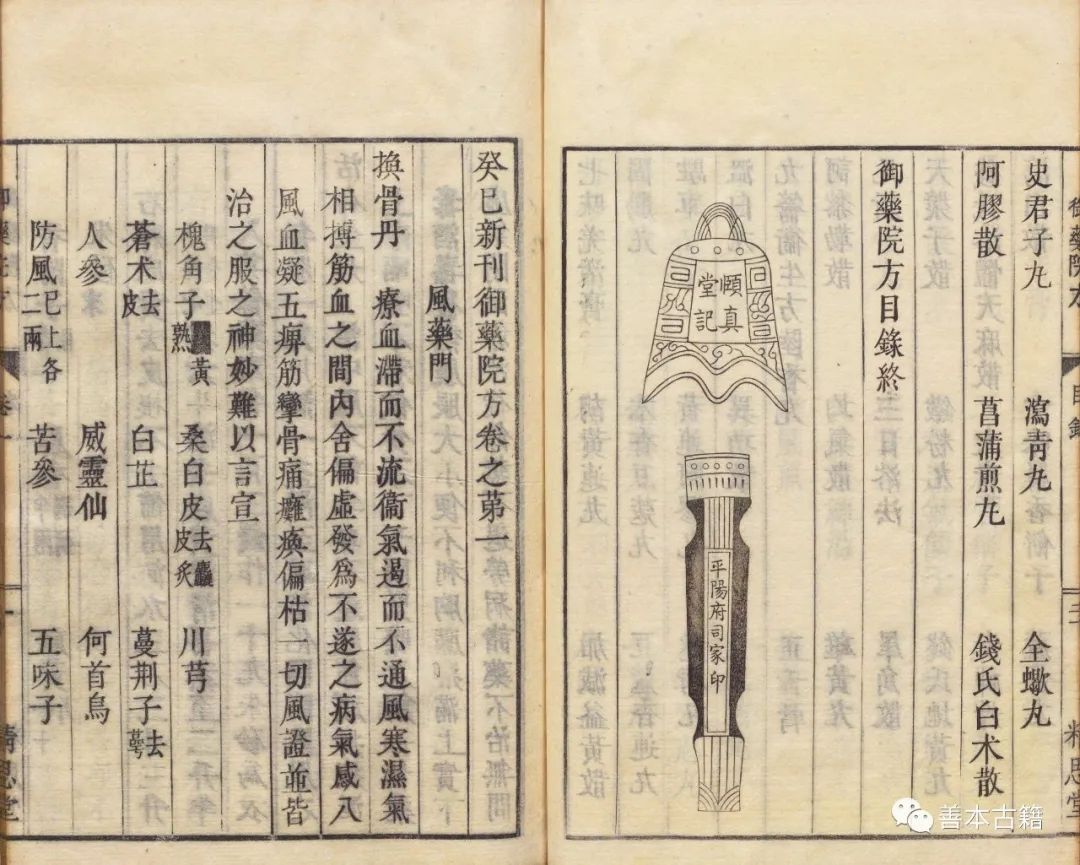 御藥院方 目錄
精思堂
史君子九 瀉青九 全蠍九
阿膠散 菖蒲煎九 錢氏白术散
御藥院方目錄終
頤真
堂記
平陽府司家印
癸巳新刊御藥院方卷之苐一
風藥門
換骨丹 療血滯而不流衞氣遏而不通風寒濕氣
相搏筋血之間內舍偏虛發爲不遂之病氣感八
風血凝五痹筋攣骨痛癱瘓偏枯一切風證並皆
治之服之神妙難以言宣
槐角子 熟 黃 桑白皮 去麤皮炙 川芎
蒼术 去皮 白芷 蔓荆子 去萼
人參 威靈仙 何首烏
防風 已上各二兩 苦參 五味子
精思堂
善本古籍